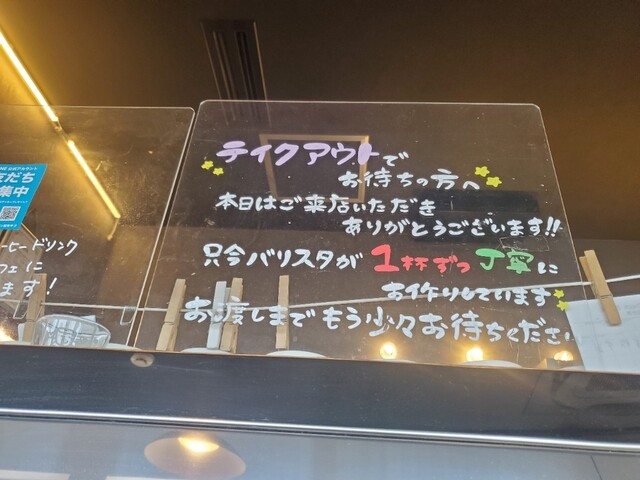 公式アカウント
友だち
集中
ーヒードリンク
フェに
ます!
テイクアウトで
お待ちの方へ
本日はご来店いただき
ありがとうございます!!
只今バリスタが1杯ずつ丁寧に
お作りしています
お渡しまでもう少々お待ちください